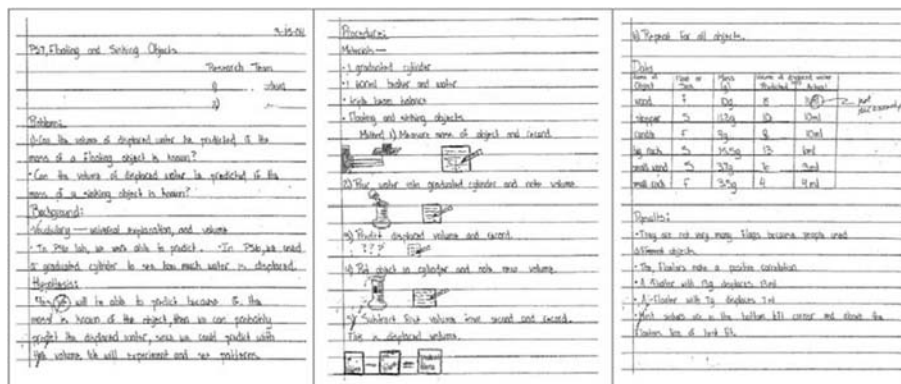 PS7, Floating and Sinking Objects
Research Team
1)
2)
Problem:
Can the volume of displaced water be predicted if the
mass of a floating object is known?
• Can the volume of displaced water be predicted if the
mass of a sinking object is known?
Background:
Vocabulary — universal explanation, and volume
• In PS6 lab, we were able to predict. • In PS6, we used
a graduated cylinder to see how much water is displaced.
Hypothesis:
will be able to predict because if the
mass is known of the object, then we can probably
predict the displaced water, since we could predict with
volume. We will experiment and see patterns.
Procedure:
Materials —
• 1 graduated cylinder
• 1 beaker and water
• triple beam balance
• Floating and sinking objects
Method 1) Measure mass of object and record.
2) Pour water into graduated cylinder and note volume.
3) Predict displaced volume and record.
4) Put object in cylinder and note new volume.
5) Subtract first volume from second and record.
This is displaced volume.
6) Repeat for all objects.
Data
Name of Object Float or Sink Mass (g) Volume of displaced water
Predicted Actual
wood F 8
stopper S 10 10ml
candle F 9g 8 10ml
big rock S 13
small S 3ml
small cork F 3.5g 4 4ml
Results:
• They are not very many flags because people used
different objects.
• The floaters make a positive correlation
• A floater with 13g displaces 13ml
• A floater with 7g displaces 7ml
• Most sinkers are in the bottom left corner and above the
floaters line of best fit.